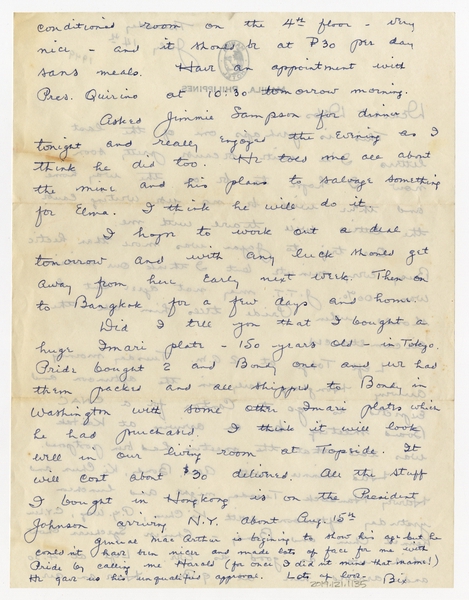 conditioned room on the 4th floor - very
nice - and it should be at ₱30 per day
sans meals. Have an appointment with
Pres. Quirino at 10:30 tomorrow morning.
Asked Jimmie Sampson for dinner
tonight and really enjoyed the evening as I
think he did too. He told me all about
the mine and his plans to salvage something
for Elma. I think he will do it.
I hope to work out a deal
tomorrow and with any luck should get
away from here early next week. Then on
to Bangkok for a few days and home.
Did I tell you that I bought a
huge Imari plate - 150 years old - in Tokyo.
Pride bought 2 and Bondy one and we had
them packed and all shipped to Bondy in
Washington with some other Imari plates which
he had purchased. I think it will look
well in our living room at Topside. It
will cost about $30 delivered. All the stuff
I bought in Hongkong is on the President
Johnson arriving N.Y. about Aug 15th
General MacArthur is begining to show his age but he
couldnt have been nicer and made lots of face for me with
Pride by calling me Harold (for once I did not mind that name!)
He gave us his unqualified approval. Lots of love - Bix
2014.121.1135